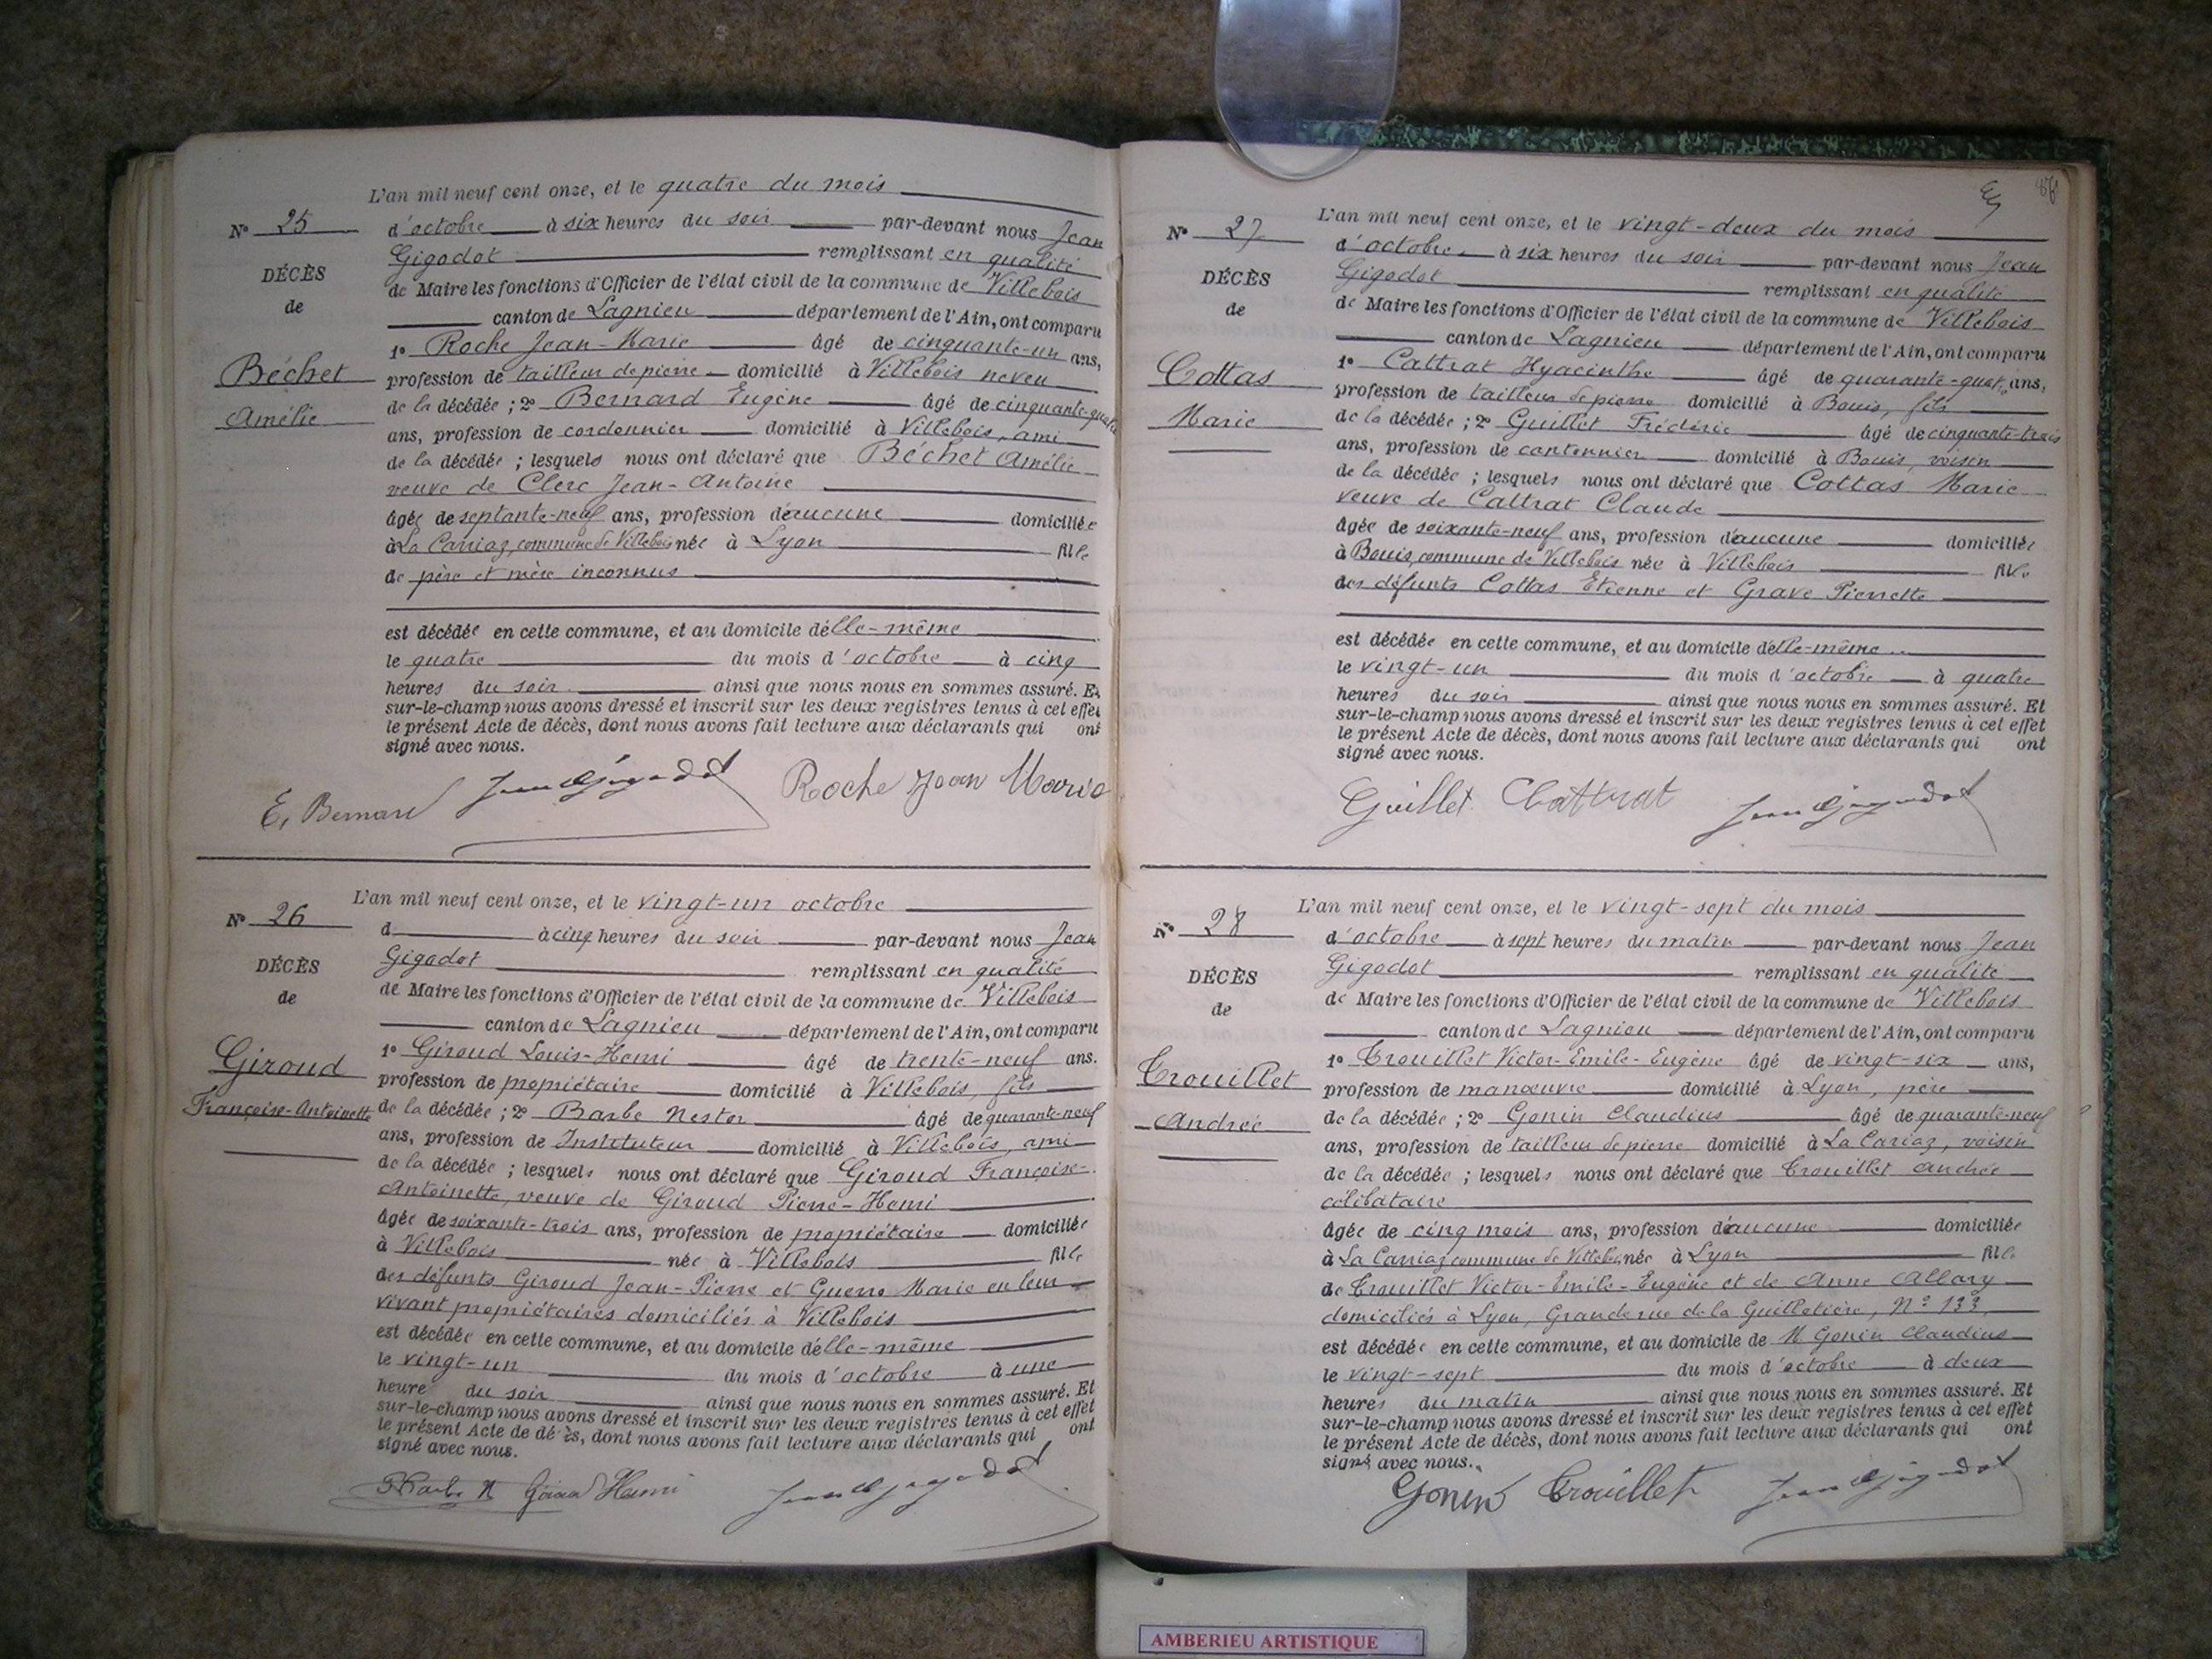 L'an mil neuf cent onze, et le quatre du mois
N° 25
d'octobre à six heures du soir par-devant nous Jean
Gigodot remplissant en qualité
DÉCÈS
de Maire les fonctions d'Officier de l'état civil de la commune de Villebois
de
canton de Lagnieu département de l'Ain, ont comparu
1° Roche Jean-Marie âgé de cinquante-un ans,
Béchet
profession de tailleur de pierre domicilié à Villebois neveu
de la décédée ; 2° Bernard Eugène âgé de cinquante-quatre
Amélie
ans, profession de cordonnier domicilié à Villebois, ami
de la décédée ; lesquels nous ont déclaré que Béchet Amélie
veuve de Clerc Jean-Antoine
âgée de septante-neuf ans, profession d'aucune domiciliée
à La Carriaz, commune de Villebois née à Lyon fille
de père et mère inconnus
est décédée en cette commune, et au domicile d'elle-même
le quatre du mois d'octobre à cinq
heures du soir ainsi que nous nous en sommes assuré. Et
sur-le-champ nous avons dressé et inscrit sur les deux registres tenus à cet effet
le présent Acte de décès, dont nous avons fait lecture aux déclarants qui ont
signé avec nous.
E. Bernard Jean Gigodot Roche Jean Marie
L'an mil neuf cent onze, et le vingt-un octobre
N° 26
d à cinq heures du soir par-devant nous Jean
Gigodot remplissant en qualité
DÉCÈS
de Maire les fonctions d'Officier de l'état civil de la commune de Villebois
de
canton de Lagnieu département de l'Ain, ont comparu
1° Giroud Louis-Henri âgé de trente-neuf ans.
Giroud
profession de propriétaire domicilié à Villebois, fils
Françoise-Antoinette
de la décédée ; 2° Barbe Nestor âgé de quarante-neuf
ans, profession de Instituteur domicilié à Villebois, ami
de la décédée ; lesquels nous ont déclaré que Giroud Françoise-
Antoinette, veuve de Giroud Pierre-Henri
âgée de soixante-trois ans, profession de propriétaire domiciliée
à Villebois née à Villebois fille
des défunts Giroud Jean-Pierre et Guerre Marie en leur
vivant propriétaires domiciliés à Villebois
est décédée en cette commune, et au domicile d'elle-même
le vingt-un du mois d'octobre à une
heure du soir ainsi que nous nous en sommes assuré. Et
sur-le-champ nous avons dressé et inscrit sur les deux registres tenus à cet effet
le présent Acte de décès, dont nous avons fait lecture aux déclarants qui ont
signé avec nous.
Barbe N Giroud Henri Jean Gigodot
L'an mil neuf cent onze, et le vingt-deux du mois
N° 27
d'octobre à six heures du soir par-devant nous Jean
Gigodot remplissant en qualité
DÉCÈS
de Maire les fonctions d'Officier de l'état civil de la commune de Villebois
de
canton de Lagnieu département de l'Ain, ont comparu
1° Cattrat Hyacinthe âgé de quarante-quat. ans,
Cottas
profession de tailleur de pierre domicilié à Bouis, fils
Marie
de la décédée ; 2° Guillet Frédéric âgé de cinquante-trois
ans, profession de cantonnier domicilié à Bouis, voisin
de la décédée ; lesquels nous ont déclaré que Cottas Marie
veuve de Cattrat Claude
âgée de soixante-neuf ans, profession d'aucune domiciliée
à Bouis, commune de Villebois née à Villebois fille
des défunts Cottas Etienne et Grave Pierrette
est décédée en cette commune, et au domicile d'elle-même
le vingt-un du mois d'octobre à quatre
heures du soir ainsi que nous nous en sommes assuré. Et
sur-le-champ nous avons dressé et inscrit sur les deux registres tenus à cet effet
le présent Acte de décès, dont nous avons fait lecture aux déclarants qui ont
signé avec nous.
Guillet Cattrat Jean Gigodot
L'an mil neuf cent onze, et le vingt-sept du mois
N° 28
d'octobre à sept heures du matin par-devant nous Jean
Gigodot remplissant en qualité
DÉCÈS
de Maire les fonctions d'Officier de l'état civil de la commune de Villebois
de
canton de Lagnieu département de l'Ain, ont comparu
1° Trouillet Victor-Emile-Eugène âgé de vingt-six ans,
Trouillet
profession de manœuvre domicilié à Lyon, père
Andrée
de la décédée ; 2° Gonin Claudius âgé de quarante-neuf
ans, profession de tailleur de pierre domicilié à La Cariaz, voisin
de la décédée ; lesquels nous ont déclaré que Trouillet Andrée
célibataire
âgée de cinq mois ans, profession d'aucune domiciliée
à La Carriaz commune de Villebois, née à Lyon fille
de Trouillet Victor-Emile-Eugène et de Anne Allary
domiciliés à Lyon, Grande rue de la Guillotière, N° 133
est décédée en cette commune, et au domicile de M Gonin Claudius
le vingt-sept du mois d'octobre à deux
heures du matin ainsi que nous nous en sommes assuré. Et
sur-le-champ nous avons dressé et inscrit sur les deux registres tenus à cet effet
le présent Acte de décès, dont nous avons fait lecture aux déclarants qui ont
signé avec nous.
Gonin Trouillet Jean Gigodot
AMBERIEU ARTISTIQUE